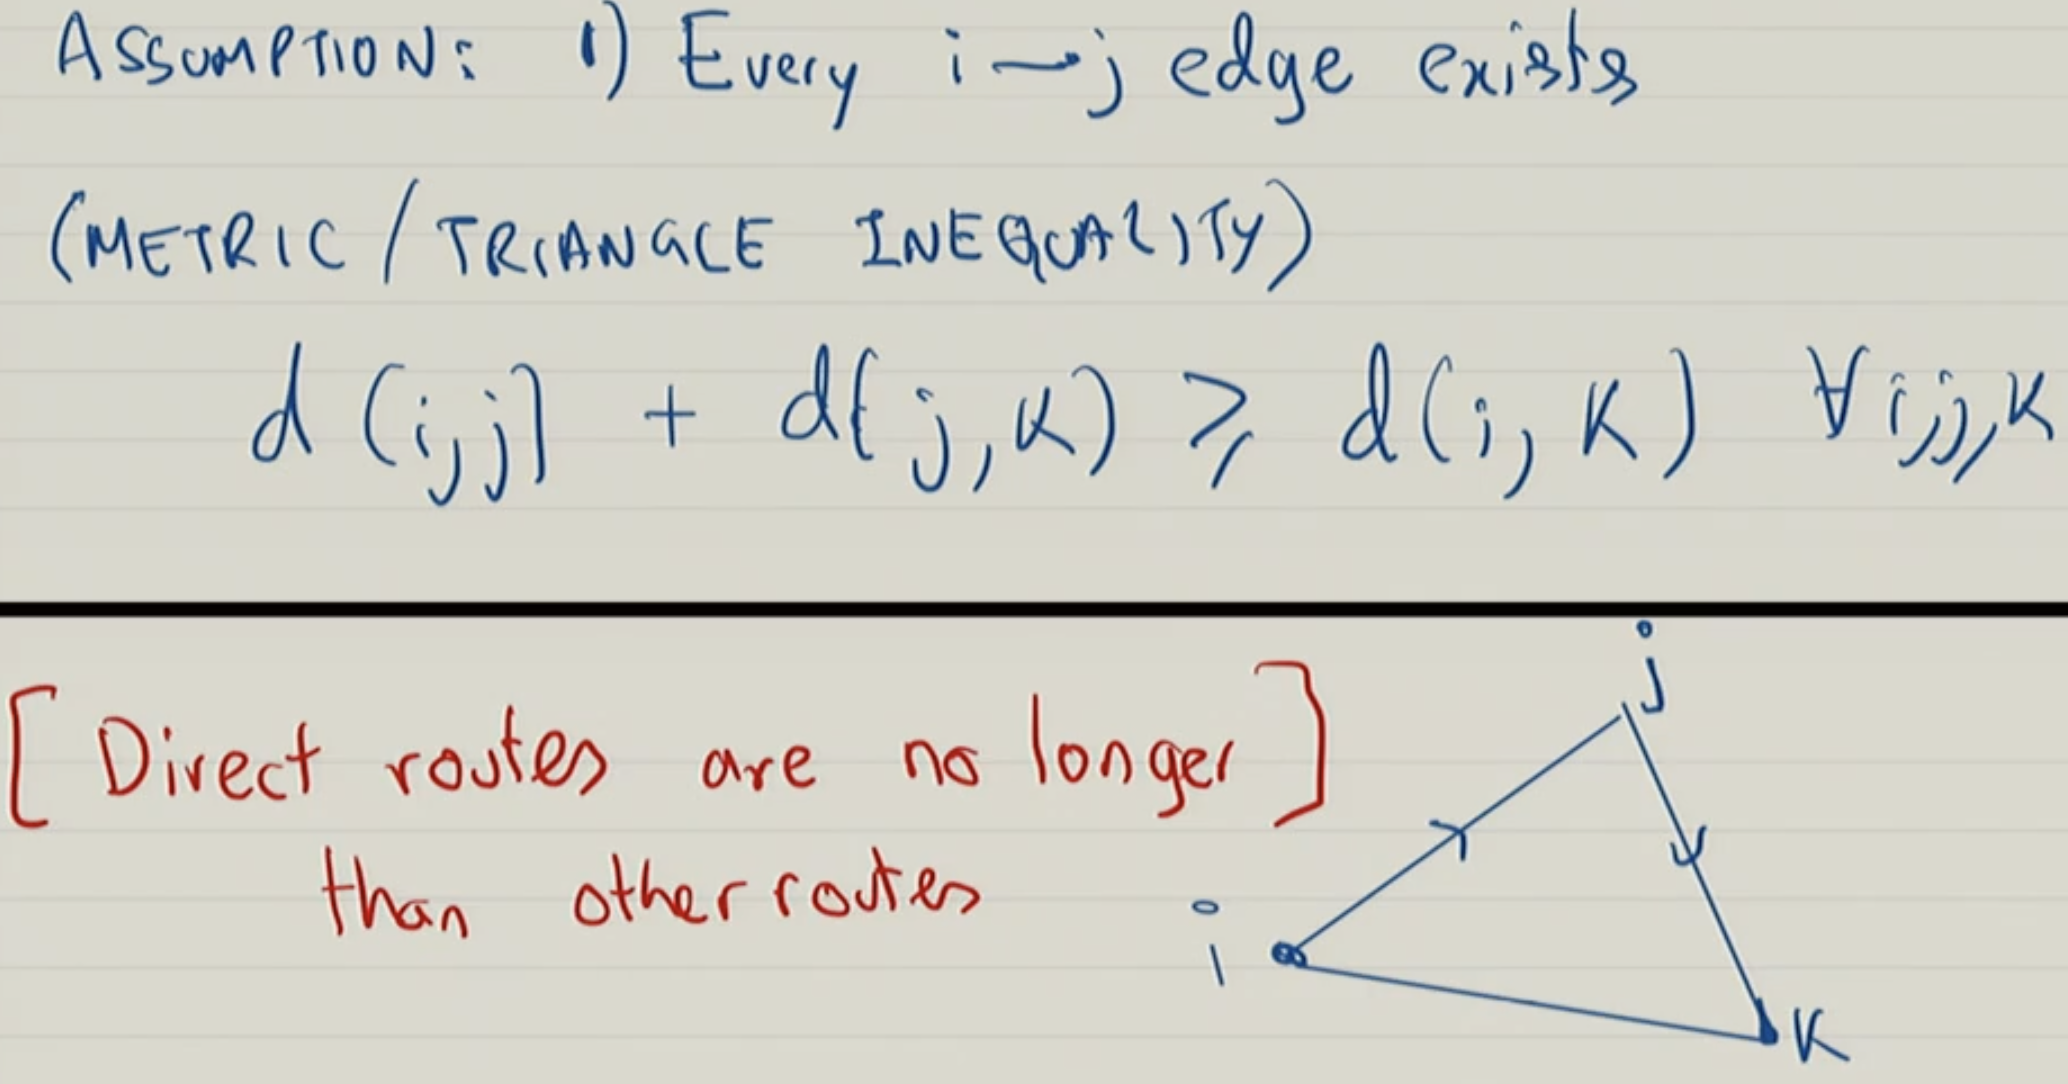 ASSUMPTION: 1) Every i—j edge exists
(METRIC / TRIANGLE INEQUALITY)
d(i,j) + d(j,k) ⩾ d(i,k) ∀i,j,k
[Direct routes are no longer]
than other routes
j
i
k